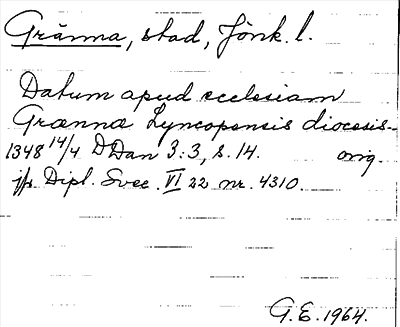 Gränna, stad, Jönk. l.
Datum apud ecclesiam
Grænnæ Lyncopensis diocesis
1348 14/4 DDan 3:3, s. 14. orig.
jfr Dipl. Svec. VI 22 nr. 4310.
G.E. 1964.